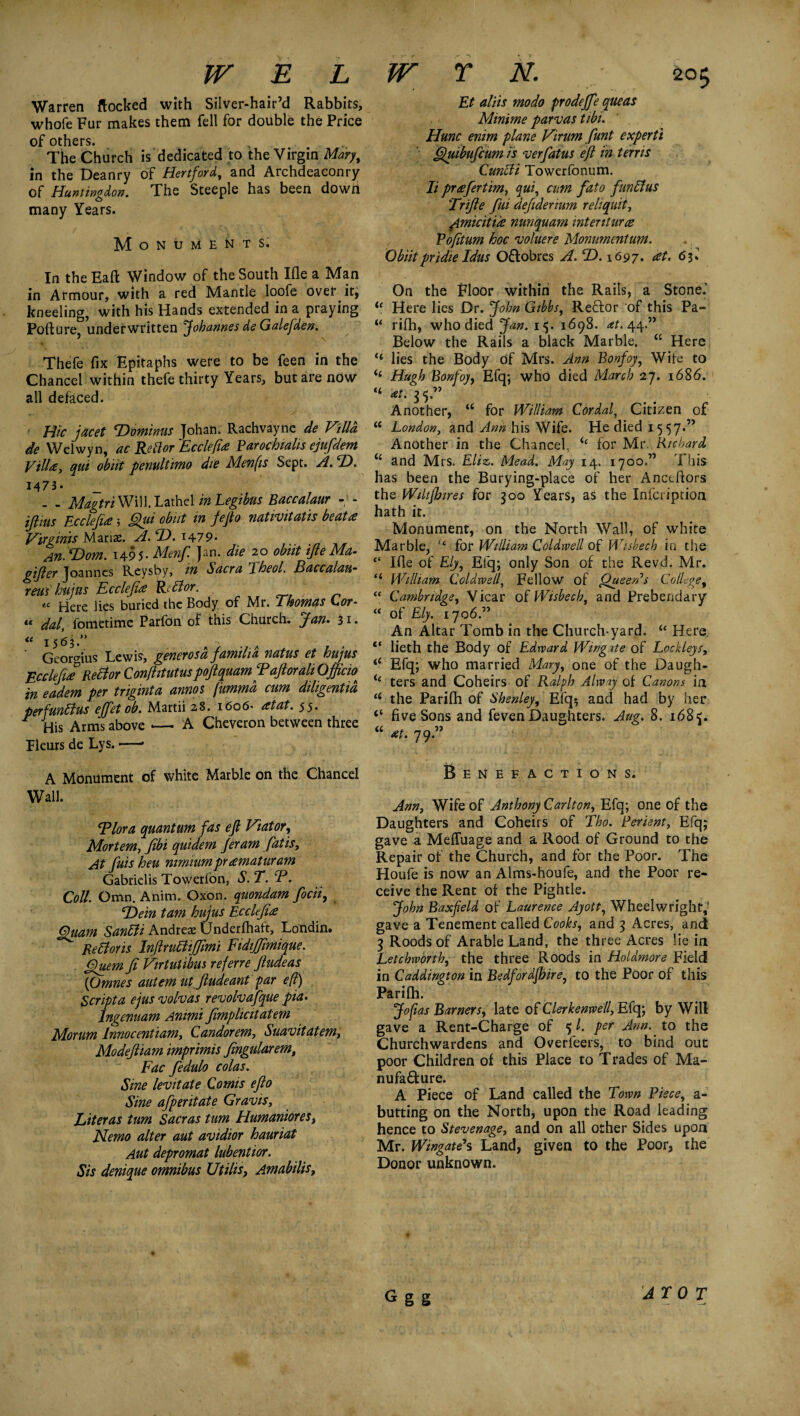 W E L W Y N. 205
Warren ſtocked with Silver-hair'd Rabbits,
whoſe Fur makes them ſell for double the Price
of others.
The Church is dedicated to the Virgin Mary,
in the Deanry of Hertford, and Archdeaconry
of Huntingdon. The Steeple has been down
many Years.
MONUMENTS.
In the Eaſt Window of the South Iſle a Man
in Armour, with a red Mantle looſe over it,
kneeling, with his Hands extended in a praying
Poſture, underwritten Johannes de Galeſden.
Theſe ſix Epitaphs were to be ſeen in the
Chancel within theſe thirty Years, but are now
all defaced.
Hic jacet Dominus Johan. Rachvayne de Villâ
de Welwyn, ac Rector Eccleſiæ Parochialis ejuſdem
Villæ, qui obiit penultimo die Menſis Sept. A. D.
1473.
_ _ Magtri Will. Lathel in Legibus Baccalaur - -
iſtius Eccleſiæ; Qui obiit in feſto nativitatis beatæ
Virginis Mariæ. A. D. 1479.
An. Dom. 1495. Menſ. Jan. die 20 obiit iſte Ma-
giſter Joannes Reysby, in Sacra Theol. Baccalau-
reus hujus Eccleſiæ Rector.
“ Here lies buried the Body of Mr. Thomas Cor-
“ dal, ſometime Parſon of this Church. Jan. 31.
“ 1563.”
Georgius Lewis, generosâ familiâ natus et hujus
Eccleſiæ Rector Conſtitutus poſtquam Paſtorali Officio
in eadem per triginta annos ſummâ cum diligentiâ
perfunctus eſſet ob. Martii 28. 1606. ætat. 55.
His Arms above —. A Cheveron between three
Fleurs de Lys. —
A Monument of white Marble on the Chancel
Wall.
Plora quantum fas eſt Viator,
Mortem, ſibi quidem ſeram ſatis,
At ſuis heu nimium præmaturam
Gabrielis Towerſon, S. T. P.
Coll. Omn. Anim. Oxon. quondam ſocii,
Dein tam hujus Eccleſiæ
Quam Sancti Andreæ Underſhaft, Londin.
Rectoris Inſtructiſſimi Fidiſſimique.
Quem ſi Virtutibus referre ſtudeas
(Omnes autem ut ſtudeant par eſt)
Scripta ejus volvas revolvaſque pia.
Ingenuam Animi ſimplicitatem
Morum Innocentiam, Candorem, Suavitatem,
Modeſtiam imprimis ſingularem,
Fac ſedulo colas.
Sine levitate Comis eſto
Sine aſperitate Gravis,
Literas tum Sacras tum Humaniores,
Nemo alter aut avidior hauriat
Aut depromat lubentior.
Sis denique omnibus Utilis, Amabilis,
Et aliis modo prodeſſe queas
Minime parvas tibi.
Hunc enim plane Virum ſunt experti
Quibuſcum is verſatus eſt in terris
Cuncti Towerſonum.
Ii præſertim, qui, cum fato functus
Triſte ſui deſiderium reliquit,
Amicitiæ nunquam interituræ
Poſitum hoc voluere Monumentum.
Obiit pridie Idus Octobres A. D. 1697. æt. 63.
On the Floor within the Rails, a Stone.
“ Here lies Dr. John Gibbs, Rector of this Pa-
“ riſh, who died Jan. 15. 1698. æt. 44.”
Below the Rails a black Marble. “ Here
“ lies the Body of Mrs. Ann Bonfoy, Wife to
“ Hugh Bonfoy, Eſq; who died March 27. 1686.
“ æt. 35.”
Another, “ for William Cordal, Citizen of
“ London, and Ann his Wife. He died 1557.”
Another in the Chancel, “ for Mr. Richard
“ and Mrs. Eliz. Mead. May 14. 1700.” This
has been the Burying-place of her Anceſtors
the Wiltſhires for 300 Years, as the Inſcription
hath it.
Monument, on the North Wall, of white
Marble, “ for William Coldwell of Wisbech in the
“ Iſle of Ely, Eſq; only Son of the Revd. Mr.
“ William Coldwell, Fellow of Queen's College,
“ Cambridge, Vicar of Wisbech, and Prebendary
“ of Ely. 1706.”
An Altar Tomb in the Church-yard. “ Here
“ lieth the Body of Edward Wingate of Lockleys,
“ Eſq; who married Mary, one of the Daugh-
“ ters and Coheirs of Ralph Alway of Canons in
“ the Pariſh of Shenley, Eſq; and had by her
“ five Sons and ſeven Daughters. Aug. 8. 1685.
“ æt. 79.”
BENEFACTIONS.
Ann, Wife of Anthony Carlton, Eſq; one of the
Daughters and Coheirs of Tho. Perient, Eſq;
gave a Meſſuage and a Rood of Ground to the
Repair of the Church, and for the Poor. The
Houſe is now an Alms-houſe, and the Poor re-
ceive the Rent of the Pightle.
John Baxfield of Laurence Ayott, Wheelwright,
gave a Tenement called Cooks, and 3 Acres, and
3 Roods of Arable Land, the three Acres lie in
Letchworth, the three Roods in Holdmore Field
in Caddington in Bedfordſhire, to the Poor of this
Pariſh.
Joſias Barners, late of Clerkenwell, Eſq; by Will
gave a Rent-Charge of 5 l. per Ann. to the
Churchwardens and Overſeers, to bind out
poor Children of this Place to Trades of Ma-
nufacture.
A Piece of Land called the Town Piece, a-
butting on the North, upon the Road leading
hence to Stevenage, and on all other Sides upon
Mr. Wingate's Land, given to the Poor, the
Donor unknown.
G g g AYOT